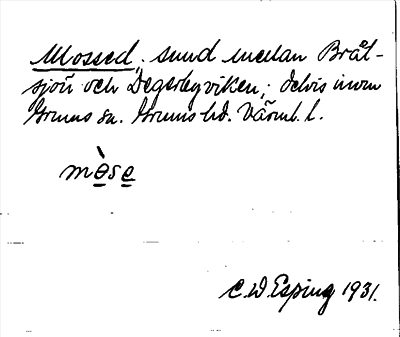 Mossed, sund mellan Bråt-
sjön och Degerbyviken; delvis inom
Grums sn. Grums hd. Värml. l.
mòse
C. W Esping 1931.